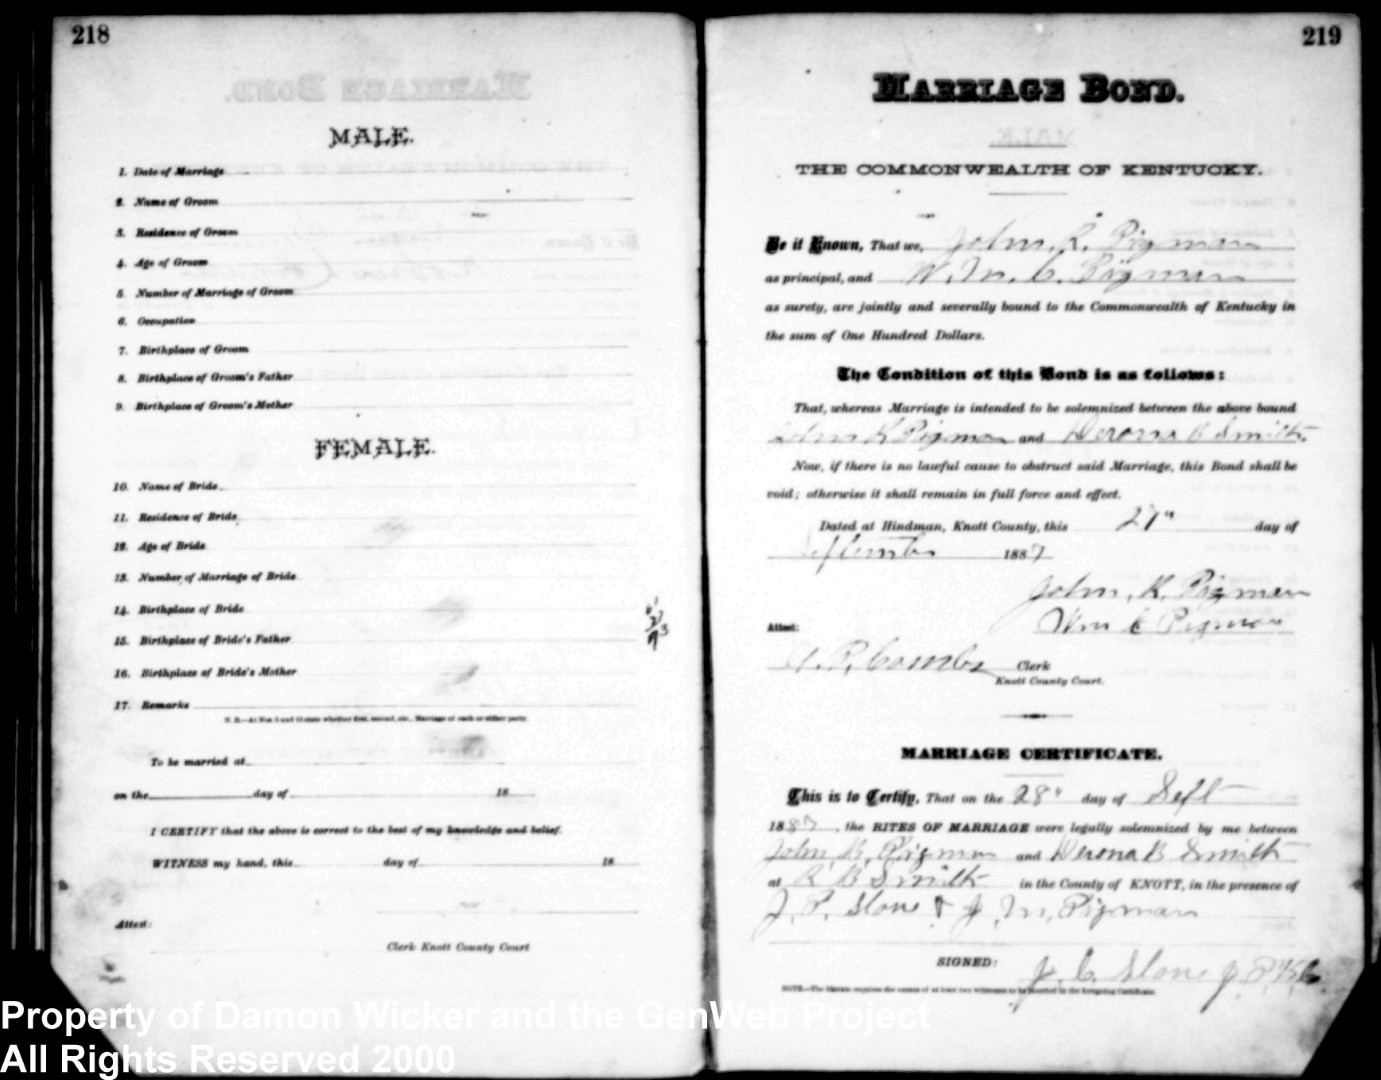 218
MALE.
1. Date of Marriage
2. Name of Groom
3. Residence of Groom
4. Age of Groom
5. Number of Marriage of Groom
6. Occupation
7. Birthplace of Groom
8. Birthplace of Groom's Father
9. Birthplace of Groom's Mother
FEMALE.
10. Name of Bride
11. Residence of Bride
12. Age of Bride
13. Number of Marriage of Bride
14. Birthplace of Bride
15. Birthplace of Bride's Father
16. Birthplace of Bride's Mother
17. Remarks
N. B.—At Nos. 5 and 13 state whether first, second, etc., Marriage of each or either party.
To be married at
on the day of 18
I CERTIFY that the above is correct to the best of my knowledge and belief.
WITNESS my hand, this day of 18
Attest:
Clerk Knott County Court
219
MARRIAGE BOND.
THE COMMONWEALTH OF KENTUCKY.
Be it Known, That we, John, R. Pigman
as principal, and W. M. C. Pigman
as surety, are jointly and severally bound to the Commonwealth of Kentucky in
the sum of One Hundred Dollars.
The Condition of this Bond is as follows:
That, whereas Marriage is intended to be solemnized between the above bound
John R Pigman and Derona B Smith
Now, if there is no lawful cause to obstruct said Marriage, this Bond shall be
void; otherwise it shall remain in full force and effect.
Dated at Hindman, Knott County, this 27" day of
September 1887
John, R. Pigman
Wm C Pigman
Attest:
P. Combs Clerk
Knott County Court.
MARRIAGE CERTIFICATE.
This is to Certify, That on the 28" day of Sept
1887, the RITES OF MARRIAGE were legally solemnized by me between
John, Pigman and Derona B Smith
at R B Smith in the County of KNOTT, in the presence of
J. P. Slone & J. M. Pigman
SIGNED: J. C. Slone J. P. K. C.
NOTE—The Statute requires the names of at least two witnesses to be inserted in the foregoing Certificate.
Property of Damon Wicker and the GenWeb Project
All Rights Reserved 2000